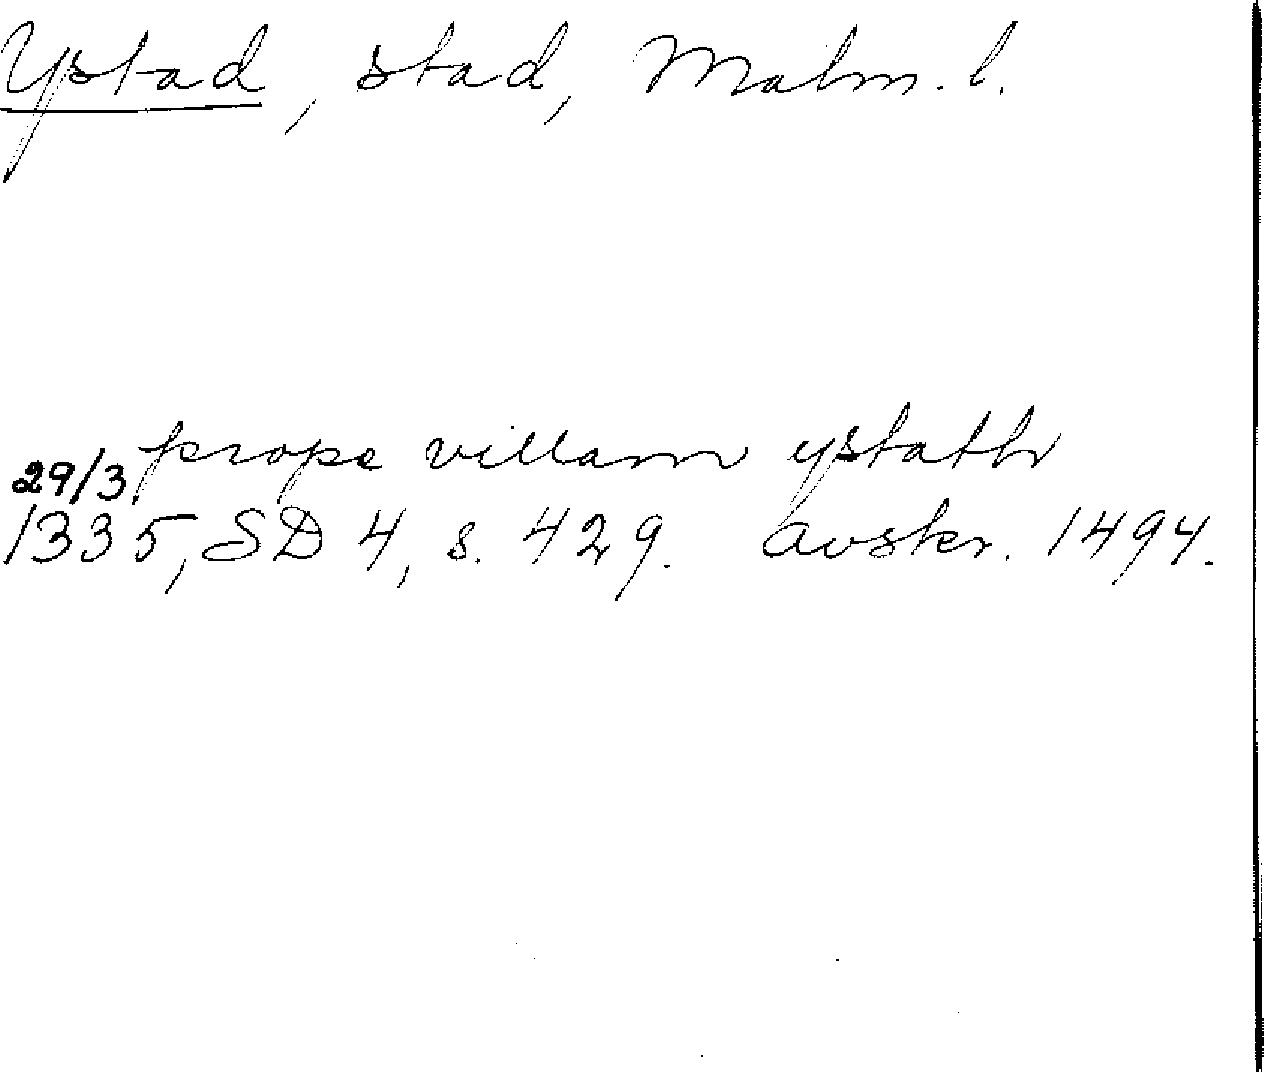 Ystad, stad, Malm. l.
prope villam ystath
29/3 1335, SD 4, s. 429. Avskr. 1494.